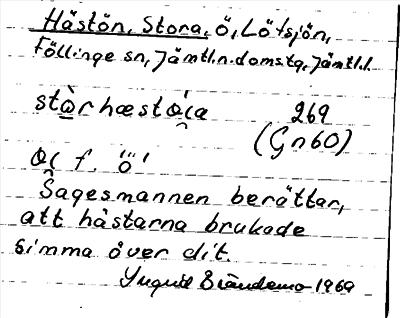 Hästön, Stora, ö, Lötsjön,
Föllinge sn, Jämtl.n.domstg, Jämtl.l.
stòrhæstøi̯a 269
(Gn60)
øi̯ f. "'ö'
Sagesmannen berättar,
att hästarna brukade
simma över dit.
1969